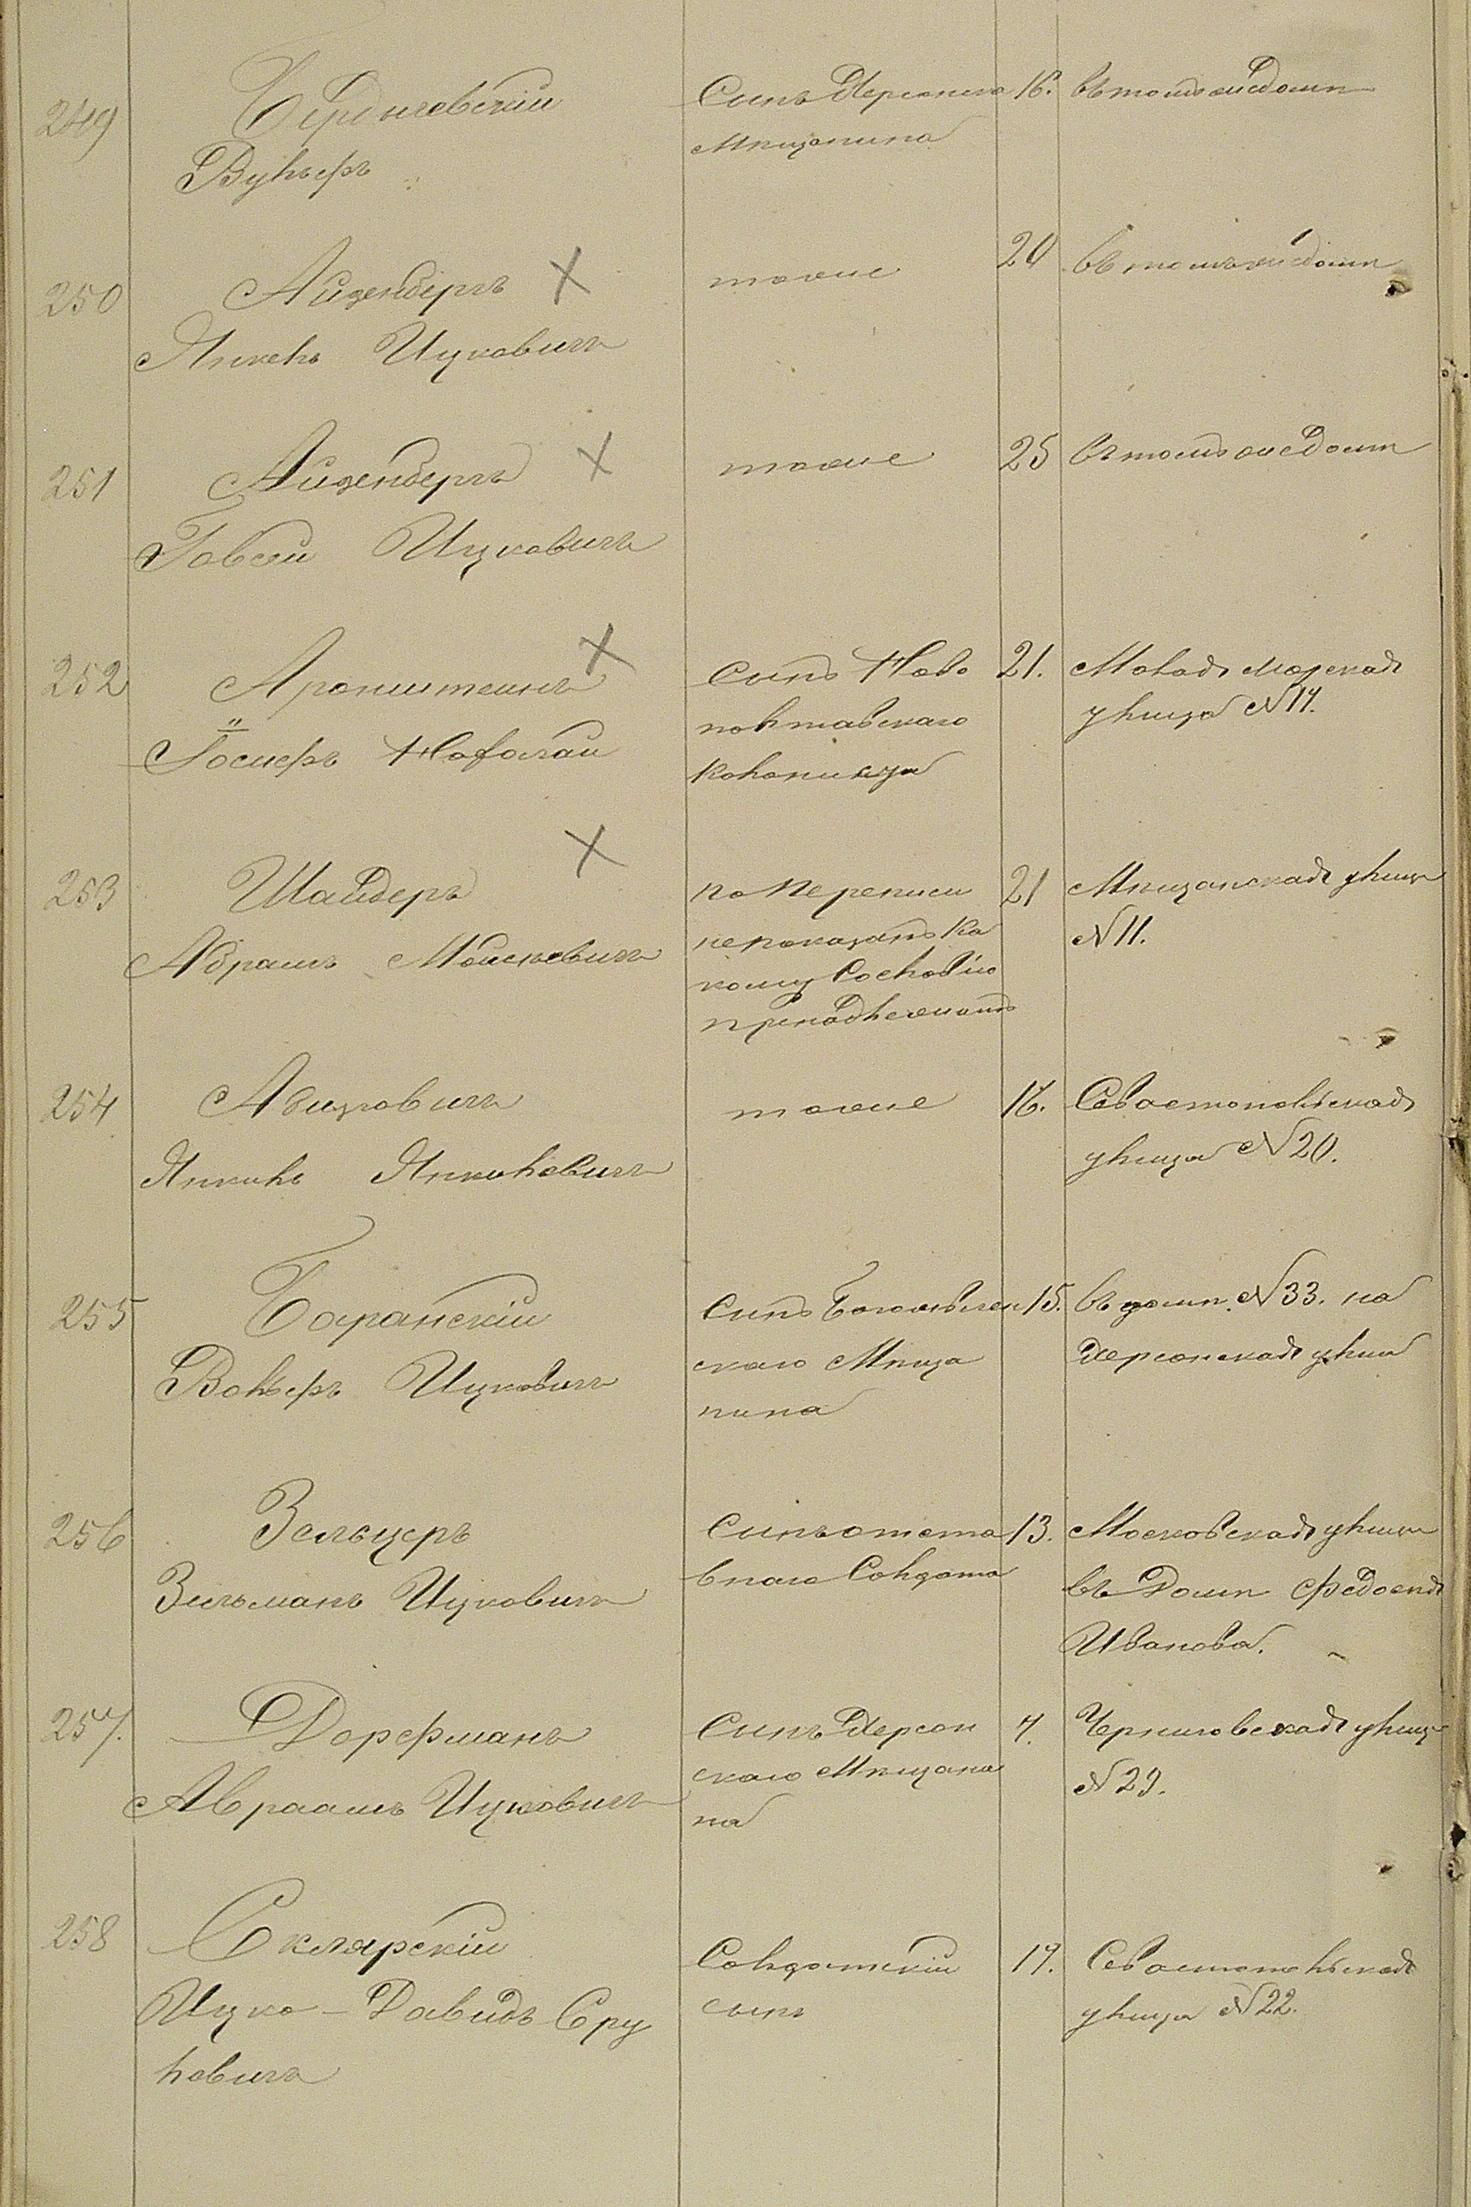 249
Бердичевскій
Вульфъ
Сынъ Херсонска
Мѣщанина
16.
въ томъ же домѣ
250
Айзенбергъ X
Янкель Ицковичъ
тоже
20
въ томъ же домѣ
251
Айзенбергъ X
Говсей Ицковичъ
тоже
25
въ томъ же домѣ
252
Аронштейнъ X
Іосифъ
Сынъ Ново
полтавскаго
колониста
21.
Малая морская
улица №
253
Шайдеръ X
Абрамъ Мошковичъ
по переписи
не показанъ ка
кому Сословію
принадлежитъ
21
Мѣщанская улица
№ 11.
254
Абиховичъ
Янкель Янкелевичъ
тоже
16.
Севастопольская
улица № 20.
255
Баранскій
Вольфъ Ицковичъ
Сынъ Богоявлен
скаго Мѣща
нина
15.
въ домѣ № 33. на
Херсонская улиц
256
Зельцеръ
Зельманъ Ицковичъ
Сынъ отста
внаго Солдата
13.
Московская улица
въ Домѣ Федосея
Иванова.
257.
Дорфманъ
Авраамъ Ицковичъ
Сынъ Херсон
скаго Мѣщани
на
Черниговская улица
№ 29.
258
Склярскій
Ицко-Давидъ Сру
левичъ
Солдатскій
сынъ
19.
Севастопольская
улица № 22.